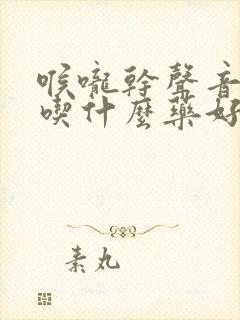 喉嚨幹聲音
喫什麼藥好
素丸